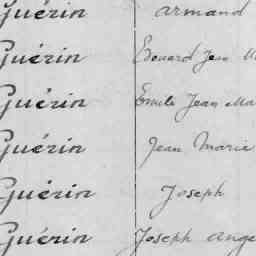 Guérin Armand
Guérin Edouard Jean
Guérin Emile Jean Ma
Guérin Jean Marie
Guérin Joseph
Guérin Joseph Ange